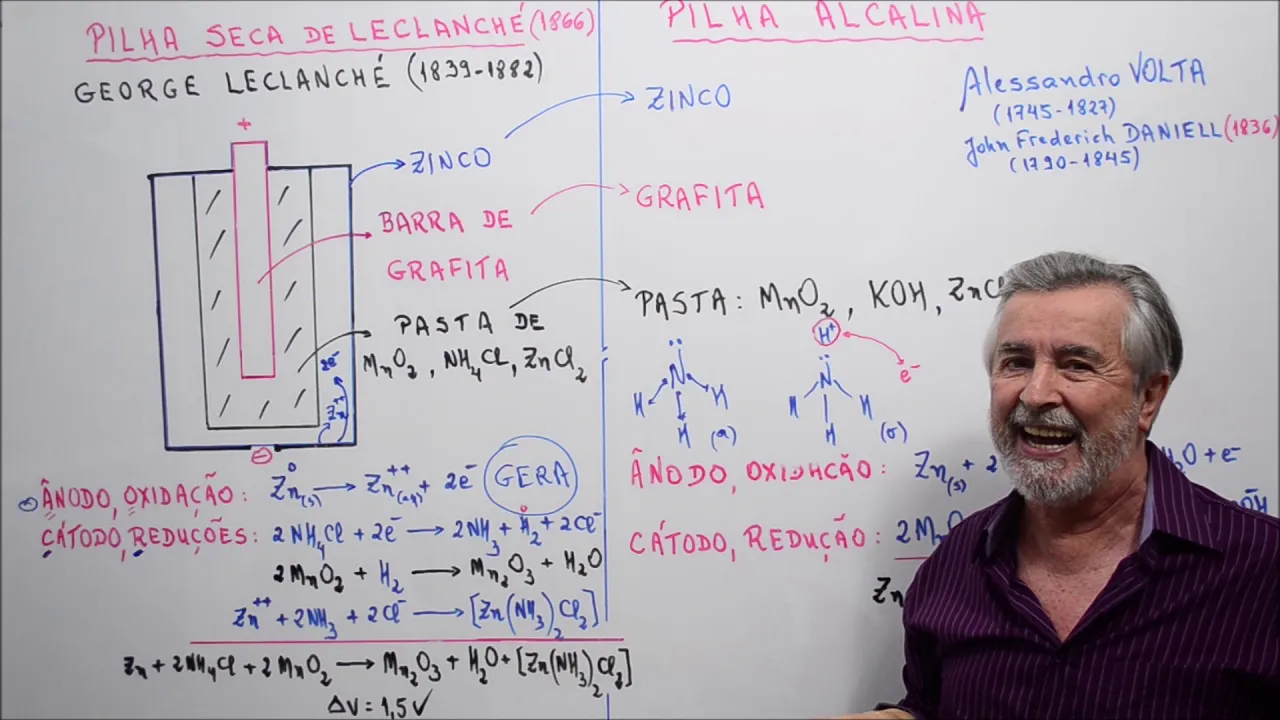 PILHA SECA DE LECLANCHÉ (1866)
GEORGE LECLANCHÉ (1839-1882)
+
ZINCO
BARRA DE
GRAFITA
PASTA DE
MnO₂, NH₄Cl, ZnCl₂
2e⁻
Zn⁺⁺
⊖
ÂNODO, OXIDAÇÃO: Zn⁰(s) → Zn⁺⁺(aq) + 2e⁻ GERA
CÁTODO, REDUÇÕES: 2NH₄Cl + 2e⁻ → 2NH₃ + H₂⁰ + 2Cl⁻
2MnO₂ + H₂ → Mn₂O₃ + H₂O
Zn⁺⁺ + 2NH₃ + 2Cl⁻ → [Zn(NH₃)₂Cl₂]
Zn + 2NH₄Cl + 2MnO₂ → Mn₂O₃ + H₂O + [Zn(NH₃)₂Cl₂]
ΔV = 1,5V
PILHA ALCALINA
Alessandro VOLTA
(1745-1827)
John Frederich DANIELL (1836)
(1790-1845)
ZINCO
GRAFITA
PASTA: MnO₂, KOH, ZnCl
H⁺
N N e⁻
H H H H
H (a) H (b)
ÂNODO, OXIDAÇÃO: Zn(s) + 2 + e⁻
CÁTODO, REDUÇÃO: 2Mn
Zn